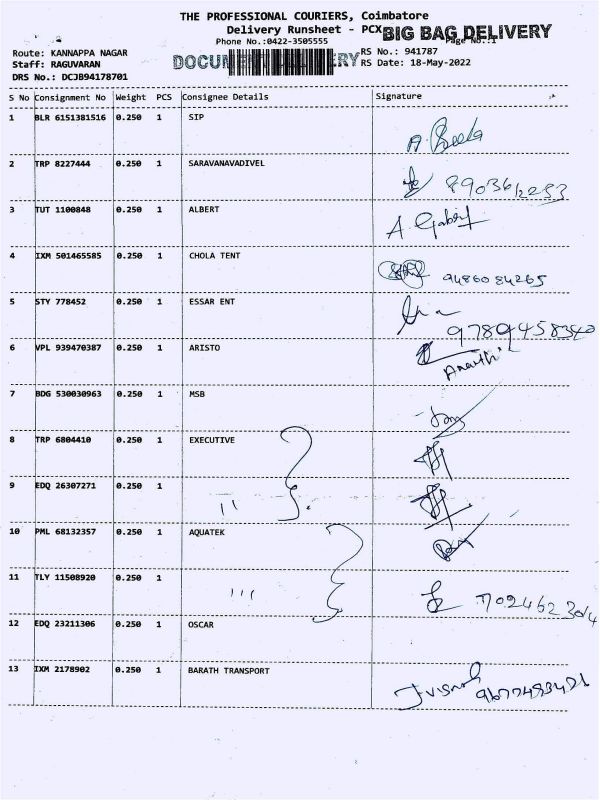 THE PROFESSIONAL COURIERS, Coimbatore
Delivery Runsheet - PCX BIG BAG DELIVERY
Phone No.:0422-3505555 Page No.:1
Route: KANNAPPA NAGAR RS No.: 941787
Staff: RAGUVARAN RS Date: 18-May-2022
DRS No.: DCJB94178701
S No Consignment No Weight PCS Consignee Details Signature
1 BLR 6151381516 0.250 1 SIP
2 TRP 8227444 0.250 1 SARAVANAVADIVEL
3 TUT 1100848 0.250 1 ALBERT
4 IXM 501465585 0.250 1 CHOLA TENT
9486084265
5 STY 778452 0.250 1 ESSAR ENT
9789458340
6 VPL 939470387 0.250 1 ARISTO
7 BDG 530030963 0.250 1 MSB
8 TRP 6804410 0.250 1 EXECUTIVE
9 EDQ 26307271 0.250 1
10 PML 68132357 0.250 1 AQUATEK
11 TLY 11508920 0.250 1
12 EDQ 23211306 0.250 1 OSCAR
13 IXM 2178902 0.250 1 BARATH TRANSPORT